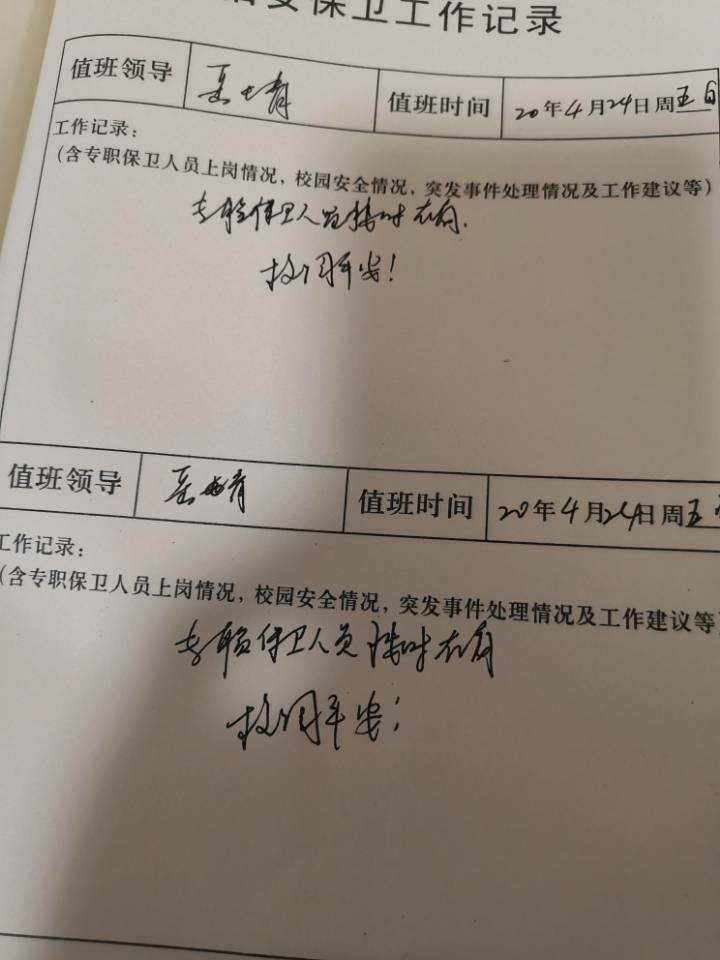 安保卫工作记录
值班领导 值班时间 20年4月24日周五
工作记录：
（含专职保卫人员上岗情况，校园安全情况，突发事件处理情况及工作建议等）
专职保卫人员按时在岗.
校园平安！
值班领导 值班时间 20年4月24日周五
工作记录：
（含专职保卫人员上岗情况，校园安全情况，突发事件处理情况及工作建议等
专职保卫人员按时在岗
校园平安！